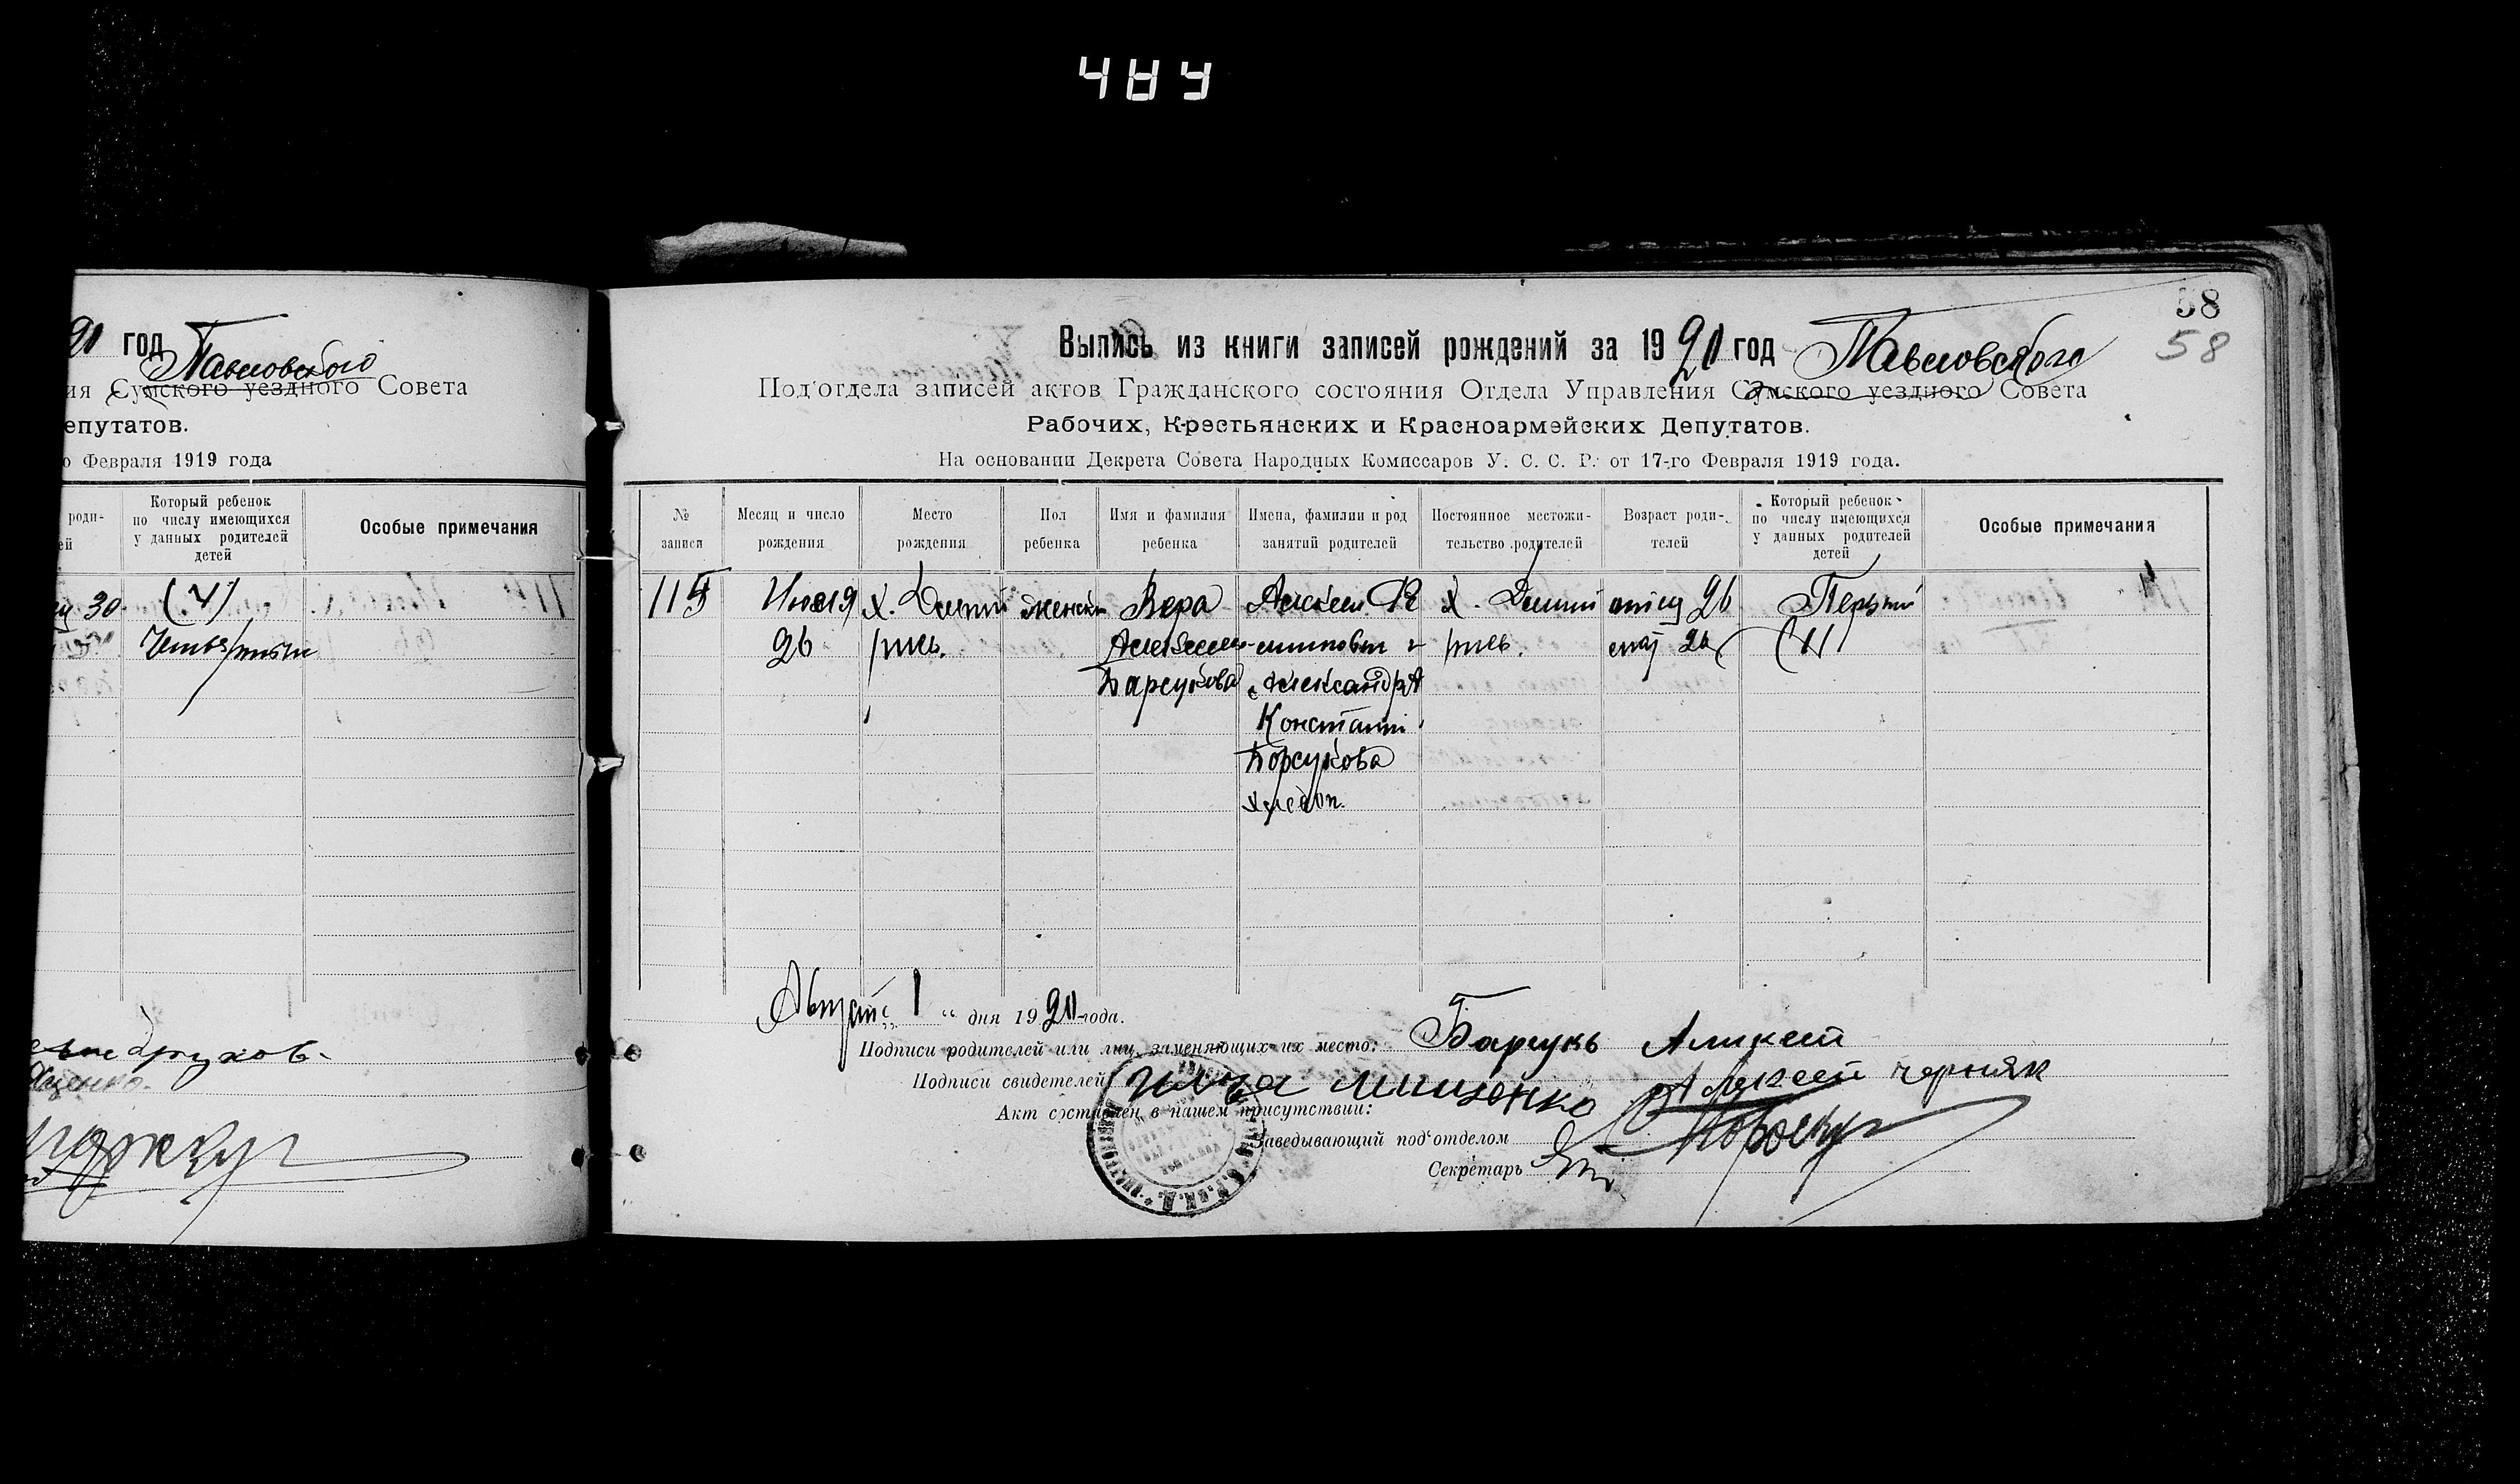 489
21 год Павловского
ия Сумского уездного Совета
епутатов.
о Февраля 1919 года
роди-
ей
Который ребенок
по числу имеющихся
у данных родителей
детей
Особые примечания
30
(4)
58
58
Выпись из книги записей рождений за 1921 год Павловского
Под'отдела записей актов Гражданского состояния Отдела Управления Сумского уездного Совета
Рабочих, Крестьянских и Красноармейских Депутатов.
На основании Декрета Совета Народных Комиссаров У. С. С. Р. от 17-го Февраля 1919 года.
№
записи
Месяц и число
рождения
Место
рождения
Пол
ребенка
Имя и фамилия
ребенка
Имена, фамилии и род
занятий родителей
Постоянное местожи-
тельство родителей
Возраст роди-
телей
Который ребенок
по числу имеющихся
у данных родителей
детей
Особые примечания
115
Июля
26
х. Дмит
рие.
женск
Вера
Алексеев
Барсукова
Алексей
Александра
Констант
Борсукова
хлебоп.
х. Дмит
рие.
отцу 26
мат 26
Первый
(1)
Август 1 " дня 1921 года.
Подписи родителей или лиц, заменяющих их место: Барсукъ Аликсей
Подписи свидетелей Илья Мищенко Алексей Черняк
Акт составлен в нашем присутствии:
Заведывающий под'отделом
Секретарь